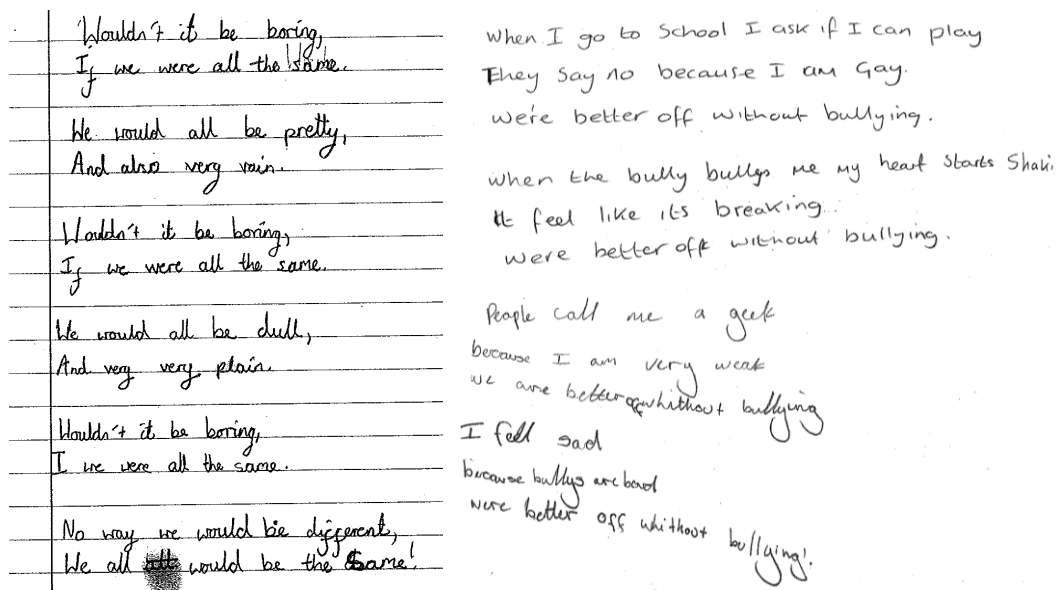 Wouldn't it be boring,
If we were all the same.
We would all be pretty,
And also very vain.
Wouldn't it be boring,
If we were all the same.
We would all be dull,
And very very plain.
Wouldn't it be boring,
I we were all the same.
No way we would be different,
We all would be the same!
When I go to School I ask if I can play
They say no because I am Gay.
we're better off without bullying.
when the bully bullys me my heart starts Shaki
It feel like its breaking.
were better off without bullying.
People call me a geek
because I am very weak
we are better off whithout bullying
I fell sad
because bullys are bad
were better off whithout bullying!